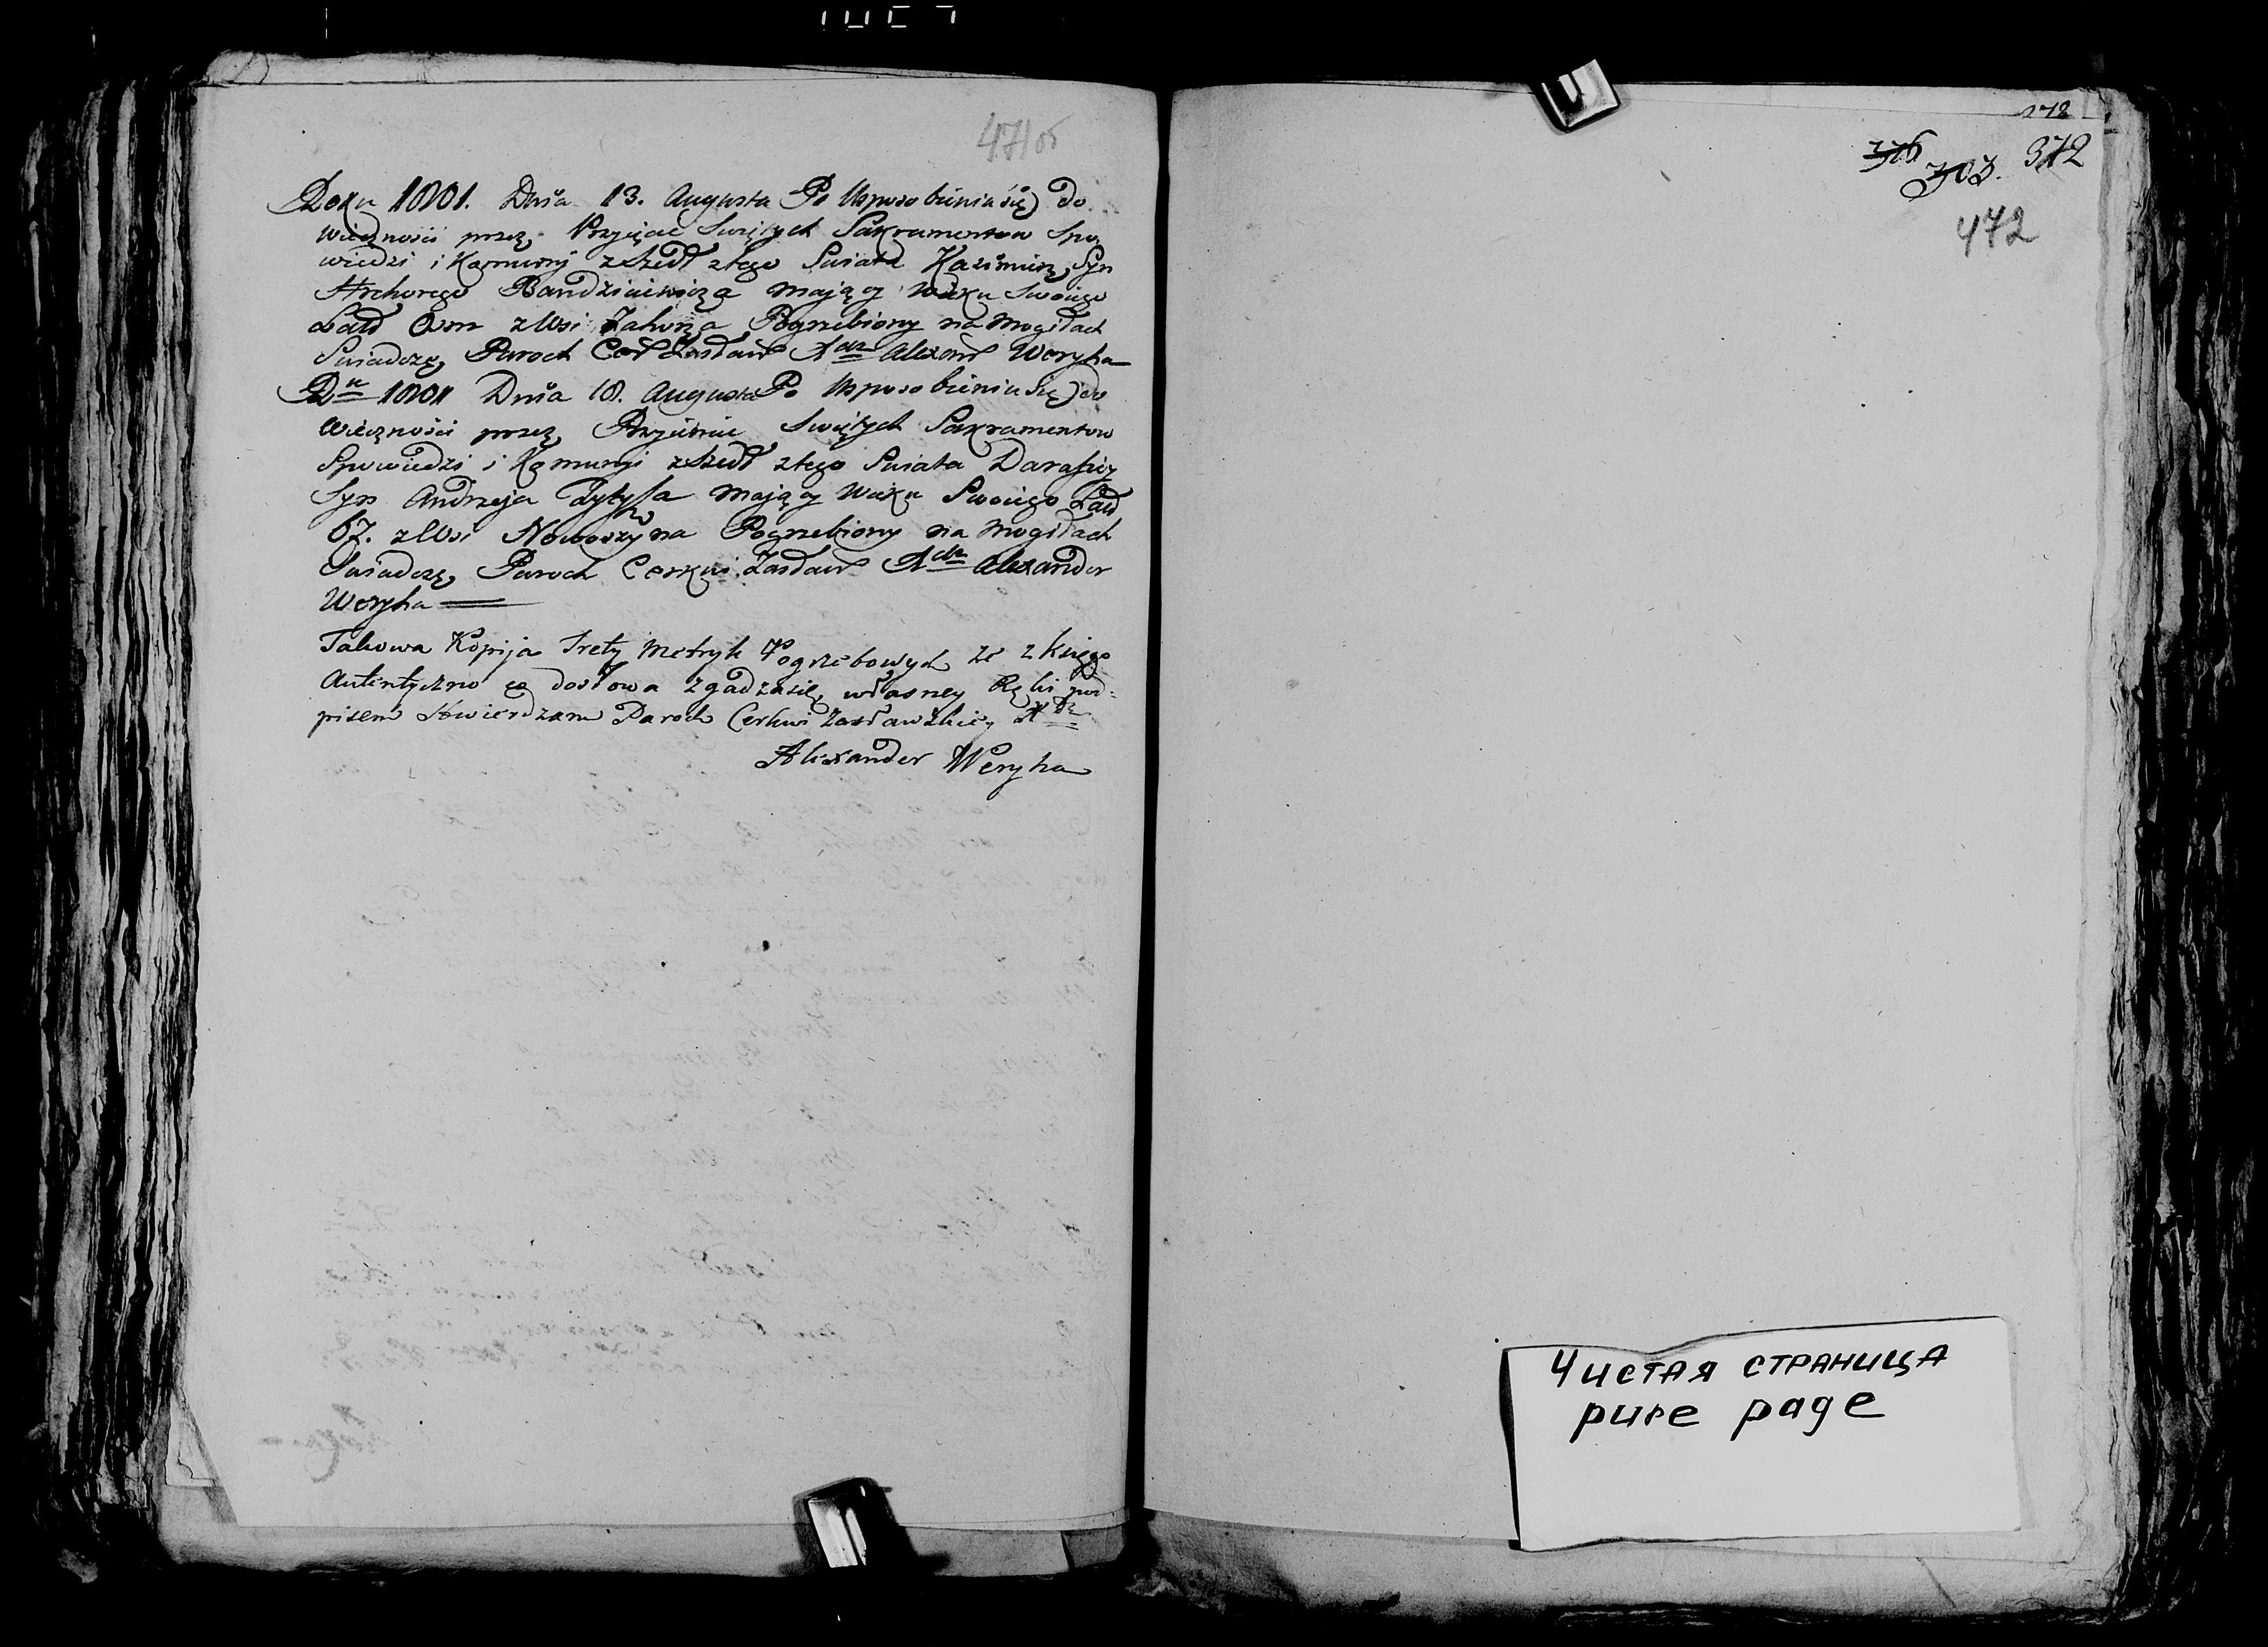 471об
Roku 1801. Dnia 13. Augusta Po Usposobieniu się do
wieczności przez Przyięcie Swiętych Sakramentow Spo,
wiedzi i Komunij zszedł ztego Swiata Kazimierz Syn
Bandziniewicza maiący wieku Swoiego
Lat Osm z Wsi Pogrzebiony na Mogiłach
Swiadczę Paroch Cer Zasław Xdz Alexand Weryha
Ru 1801 Dnia 18. Augusta Po Usposobieniu Się do
wieczności przez Przyięcie Swiętych Sakramentow
Spowiedzi i Komunyi zszedł ztego Swiata Darafiey
Syn Andrzeja maiący Wieku Swoiego Lat
67. z Wsi Pogrzebiony na Mogiłach
Swiadczę Paroch Cerkwi Zasław Xdz Alexander
Weryha
Takowa Kopija Trety Metryk Pogrzebowych że z Księgo
Autentyczno co dosłowa zgadzasię, własney Ręki pod:
pisem stwierdzam Paroch Cerkwi Zasławskiey Xdz
Alexander Weryha
376
703. 372
472
Чистая страница
pure page